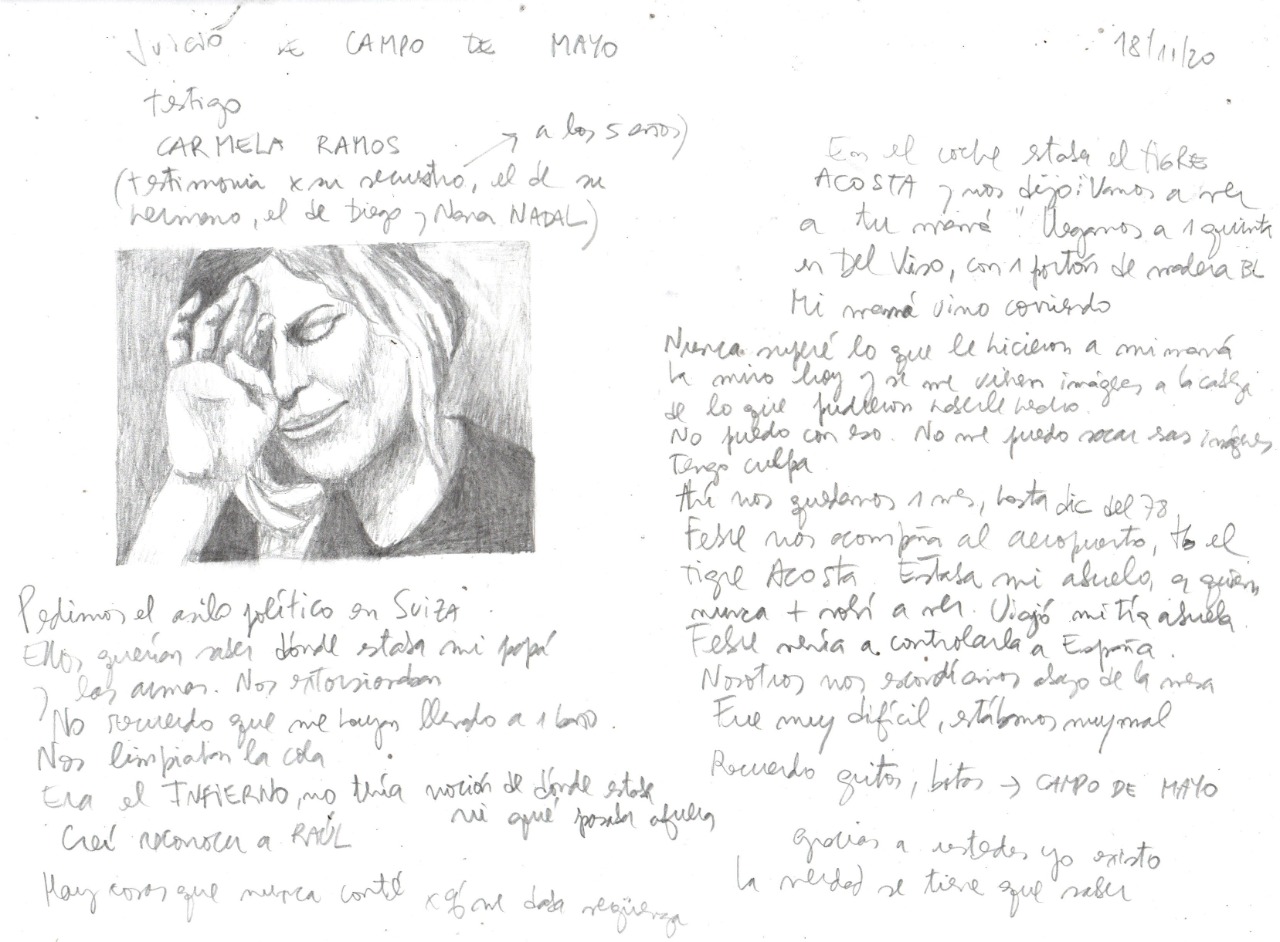 Juicio DE CAMPO DE MAYO
18/11/20
testigo
CARMELA RAMOS
(testimonia x su secuestro, el de su → a los 5 años)
hermano, el de Diego y Nana NADAL)
Pedimos el asilo político en SUIZA
Ellos querían saber dónde estaba mi papá
y las armas. Nos extorsionaban
No recuerdo que me hayan llevado a 1 baño.
Nos limpiaban la cola
Era el INFIERNO, no tenía noción de dónde estaba
ni qué pasaba afuera
Creí reconocer a RAÚL
Hay cosas que nunca conté x q me daba vergüenza
En el coche estaba el tIGRE
ACOSTA y nos dijo: "Vamos a ver
a tu mamá" llegamos a 1 quinta
en Del Viso, con 1 portón de madera BL
Mi mamá vino corriendo
Nunca superé lo que le hicieron a mi mamá
La miro hoy y se me vienen imágenes a la cabeza
de lo que pudieron haberle hecho.
No puedo con eso. No me puedo sacar esas imágenes
Tengo culpa
Ahí nos quedamos 1 mes, hasta dic del 78
Febre nos acompaña al aeropuerto, tb el
tigre Acosta. Estaba mi abuelo, a quien
nunca + volví a ver. Viajó mi tía abuela.
Febre venía a controlarla a España.
Nosotros nos escondíamos abajo de la mesa
Fue muy difícil, estábamos muy mal
Recuerdo gritos, botas → CAMPO DE MAYO
gracias a ustedes yo existo
La verdad se tiene que saber